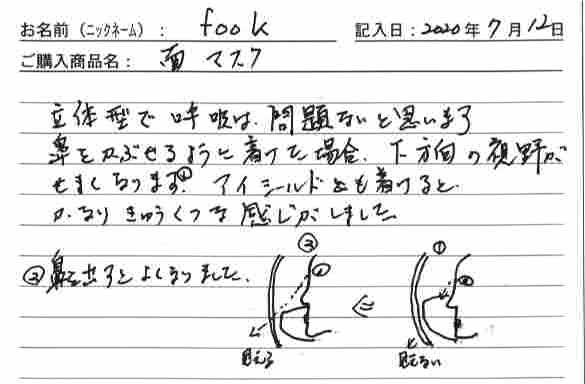 お名前（ニックネーム）： fook 記入日：2020年7月12日
ご購入商品名： 面マスク
立体型で呼吸は問題ないと思います
鼻をかぶせるように着けた場合、下方向の視野が
せまくなります① アイシールドをも着けると
かなりきゅうくつな感じがしました
②鼻を出すとよくなりました。
② ①
見える 見えない